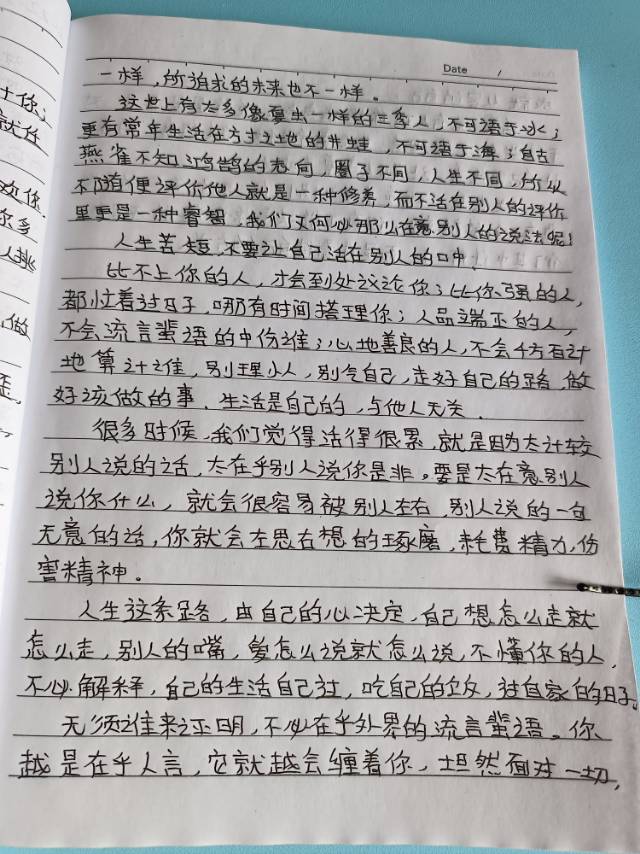 十你;
就任
欢你.
尔多
人挑
做
歪,
Date /
一样,所追求的未来也不一样。
这世上有太多像夏虫一样的三季人,不可语于冰;
更有常年生活在方寸之地的井蛙,不可语于海;自古
燕雀不知鸿鹄的志向,圈子不同,人生不同,所以
不随便评价他人就是一种修养,而不活在别人的评价
里更是一种睿智,我们又何必那么在意别人的说法呢!
人生苦短,不要让自己活在别人的口中.
比不上你的人,才会到处议论你;比你强的人,
都忙着过日子,哪有时间搭理你;人品端正的人,
不会流言蜚语的中伤谁;心地善良的人,不会千方百计
地算计谁,别理小人,别气自己,走好自己的路,做
好该做的事.生活是自己的,与他人无关.
很多时候,我们觉得活得很累,就是因为太计较
别人说的话,太在乎别人说你是非。要是太在意别人
说你什么,就会很容易被别人左右,别人说的一句
无意的话,你就会左思右想的琢磨,耗费精力,伤
害精神。
人生这条路,由自己的心决定,自己想怎么走就
怎么走,别人的嘴,爱怎么说就怎么说,不懂你的人,
不必解释,自己的生活自己过,吃自己的饭,过自家的日子。
无须谁来证明,不必在乎外界的流言蜚语。你
越是在乎人言,它就越会缠着你,坦然面对一切,